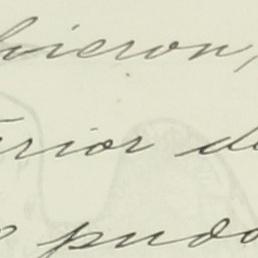 hicieron,
erior de
pudo